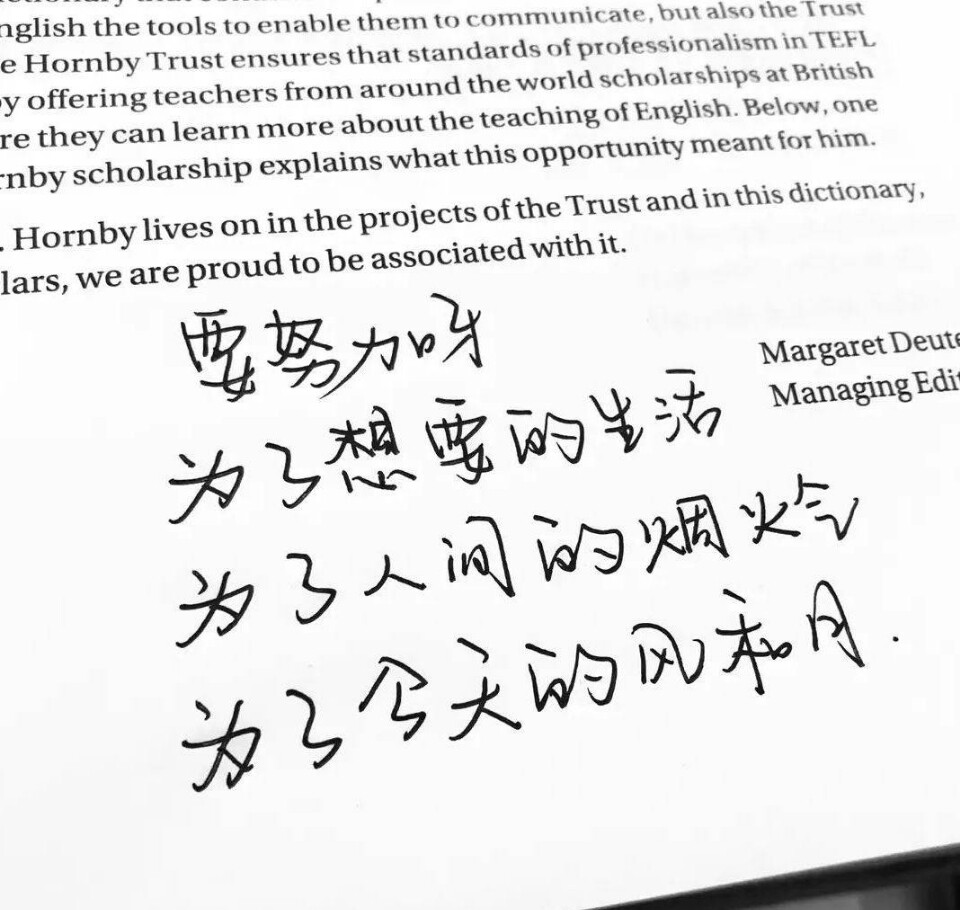 nglish the tools to enable them to communicate, but also the Trust
e Hornby Trust ensures that standards of professionalism in TEFL
y offering teachers from around the world scholarships at British
re they can learn more about the teaching of English. Below, one
rnby scholarship explains what this opportunity meant for him.
. Hornby lives on in the projects of the Trust and in this dictionary,
lars, we are proud to be associated with it.
Margaret Deute
Managing Edit
要努力呀
为了想要的生活
为了人间的烟火气
为了今天的风和月.